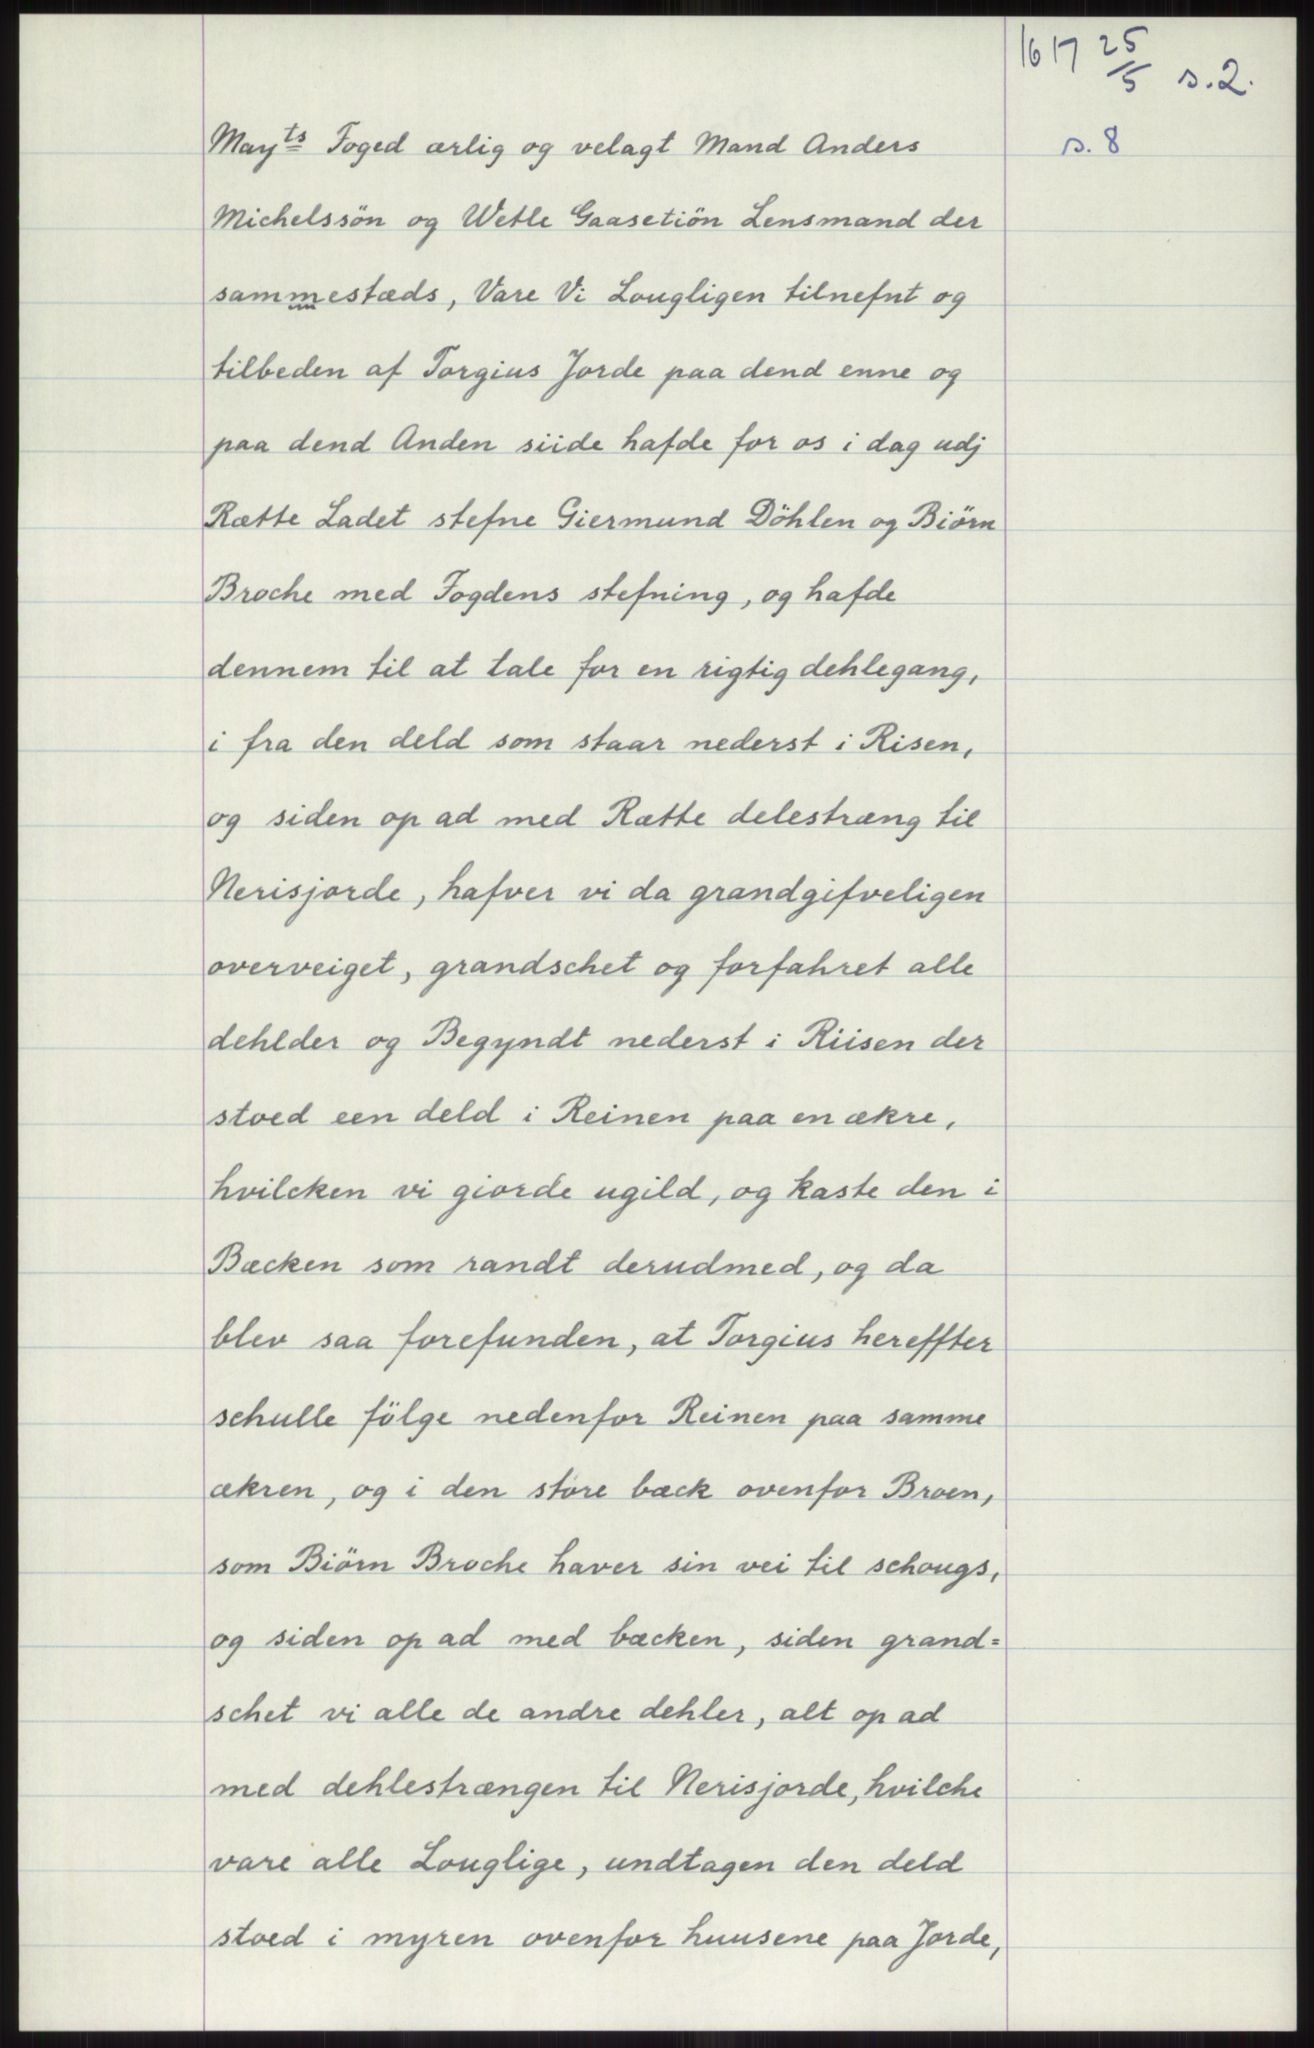 1617 25/5 s.2.
s. 8
Mayts Foged ærlig og velagt Mand Anders
Michelssön og Wetle Gaasetiön Lensmand der
sammestæds, Vare Vi Lougligen tilnefnt og
tilbeden af Torgius Jorde paa dend enne og
paa dend Anden siide hafde for os i dag udj
Rætte Ladet stefne Giermund Döhlen og Biörn
Broche med Fogdens stefning, og hafde
dennem til at tale for en rigtig dehlegang,
i fra den deld som staar nederst i Risen,
og siden op ad med Rætte delestræng til
Nerisjorde, hafver vi da grandgifveligen
overveiget, grandschet og forfahret alle
dehlder og Begyndt nederst i Riisen der
stoed een deld i Reinen paa en ækre,
hvilcken vi giorde ugild, og kaste den i
Bæcken som randt derudmed, og da
blev saa forefunden, at Torgius hereffter
schulle fölge nedenfor Reinen paa samme
ækren, og i den store bæck ovenfor Broen,
som Biörn Broche haver sin vei til schougs,
og siden op ad med bæcken, siden grand=
schet vi alle de andre dehler, alt op ad
med dehlestrængen til Nerisjorde, hvilche
vare alle Louglige, undtagen den deld
stoed i myren ovenfor huusene paa Jorde,